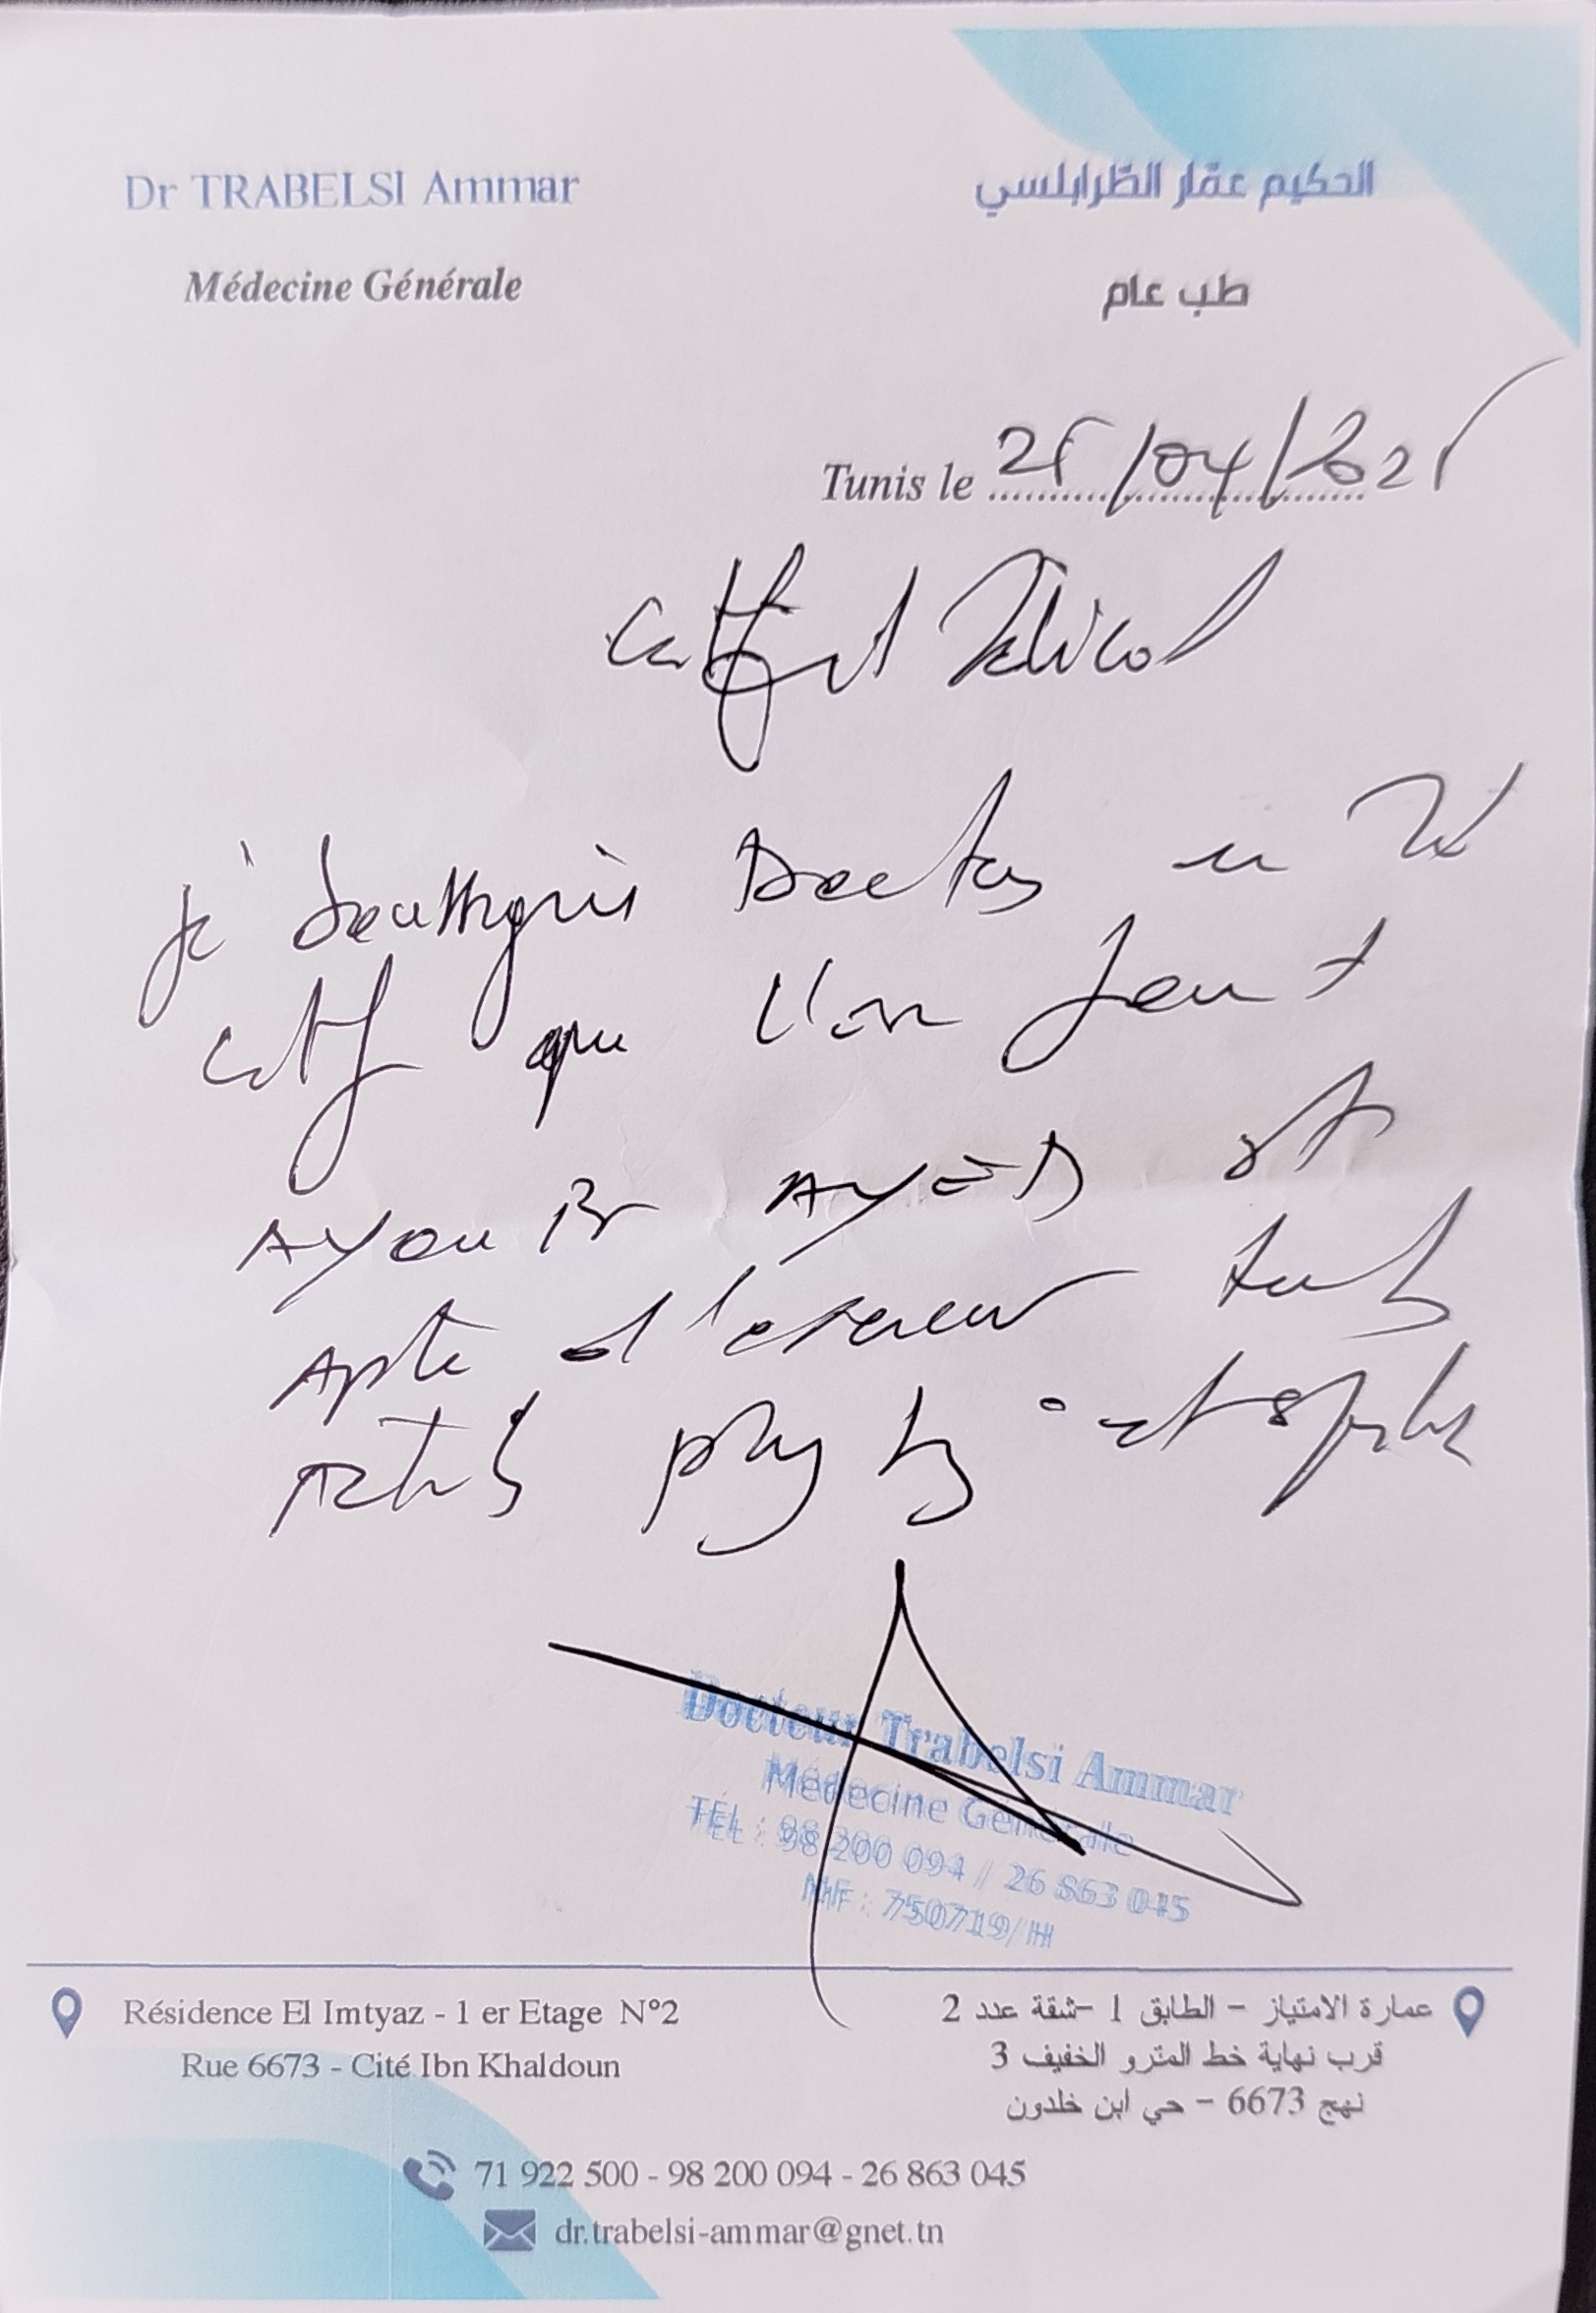 Dr TRABELSI Ammar
الحكيم عمّار الطّرابلسي
Médecine Générale
طب عام
Tunis le 25/04/2025
Certificat Médical
Je soussigné Docteur en Med
certifie que l'enfant
AYOUB AYED est
apte d'exercer toutes
activités physiques et sportives
Docteur Trabelsi Ammar
Médecine Générale
TEL : 98 200 094 / 26 863 045
MF : 750719/H
Résidence El Imtyaz - 1 er Etage N°2
Rue 6673 - Cité Ibn Khaldoun
عمارة الامتياز - الطابق 1 -شقة عدد 2
قرب نهاية خط المترو الخفيف 3
نهج 6673 - حي ابن خلدون
71 922 500 - 98 200 094 - 26 863 045
dr.trabelsi-ammar@gnet.tn